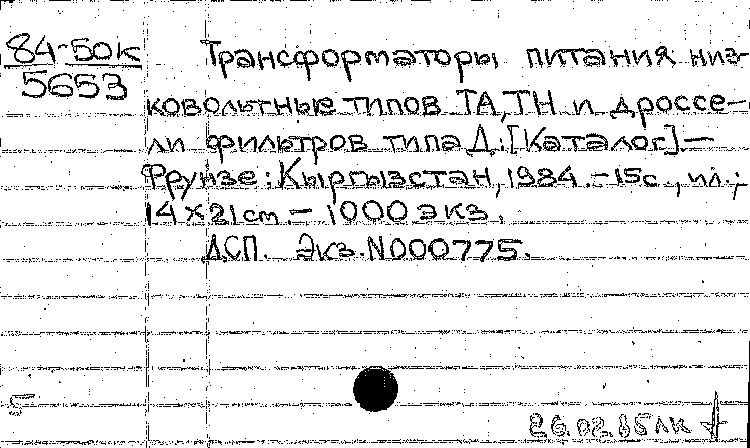 84-50к
5653
Трансформаторы питания низ-
ковольтные типов ТА, ТН и дроссе-
ли фильтров типа Д: [Каталог].—
Фрунзе: Кыргызстан, 1984.-15с., ил.;
14×21см.— 1000 экз.
ДСП. Экз. N000775.
5
26.02.85 ЛК